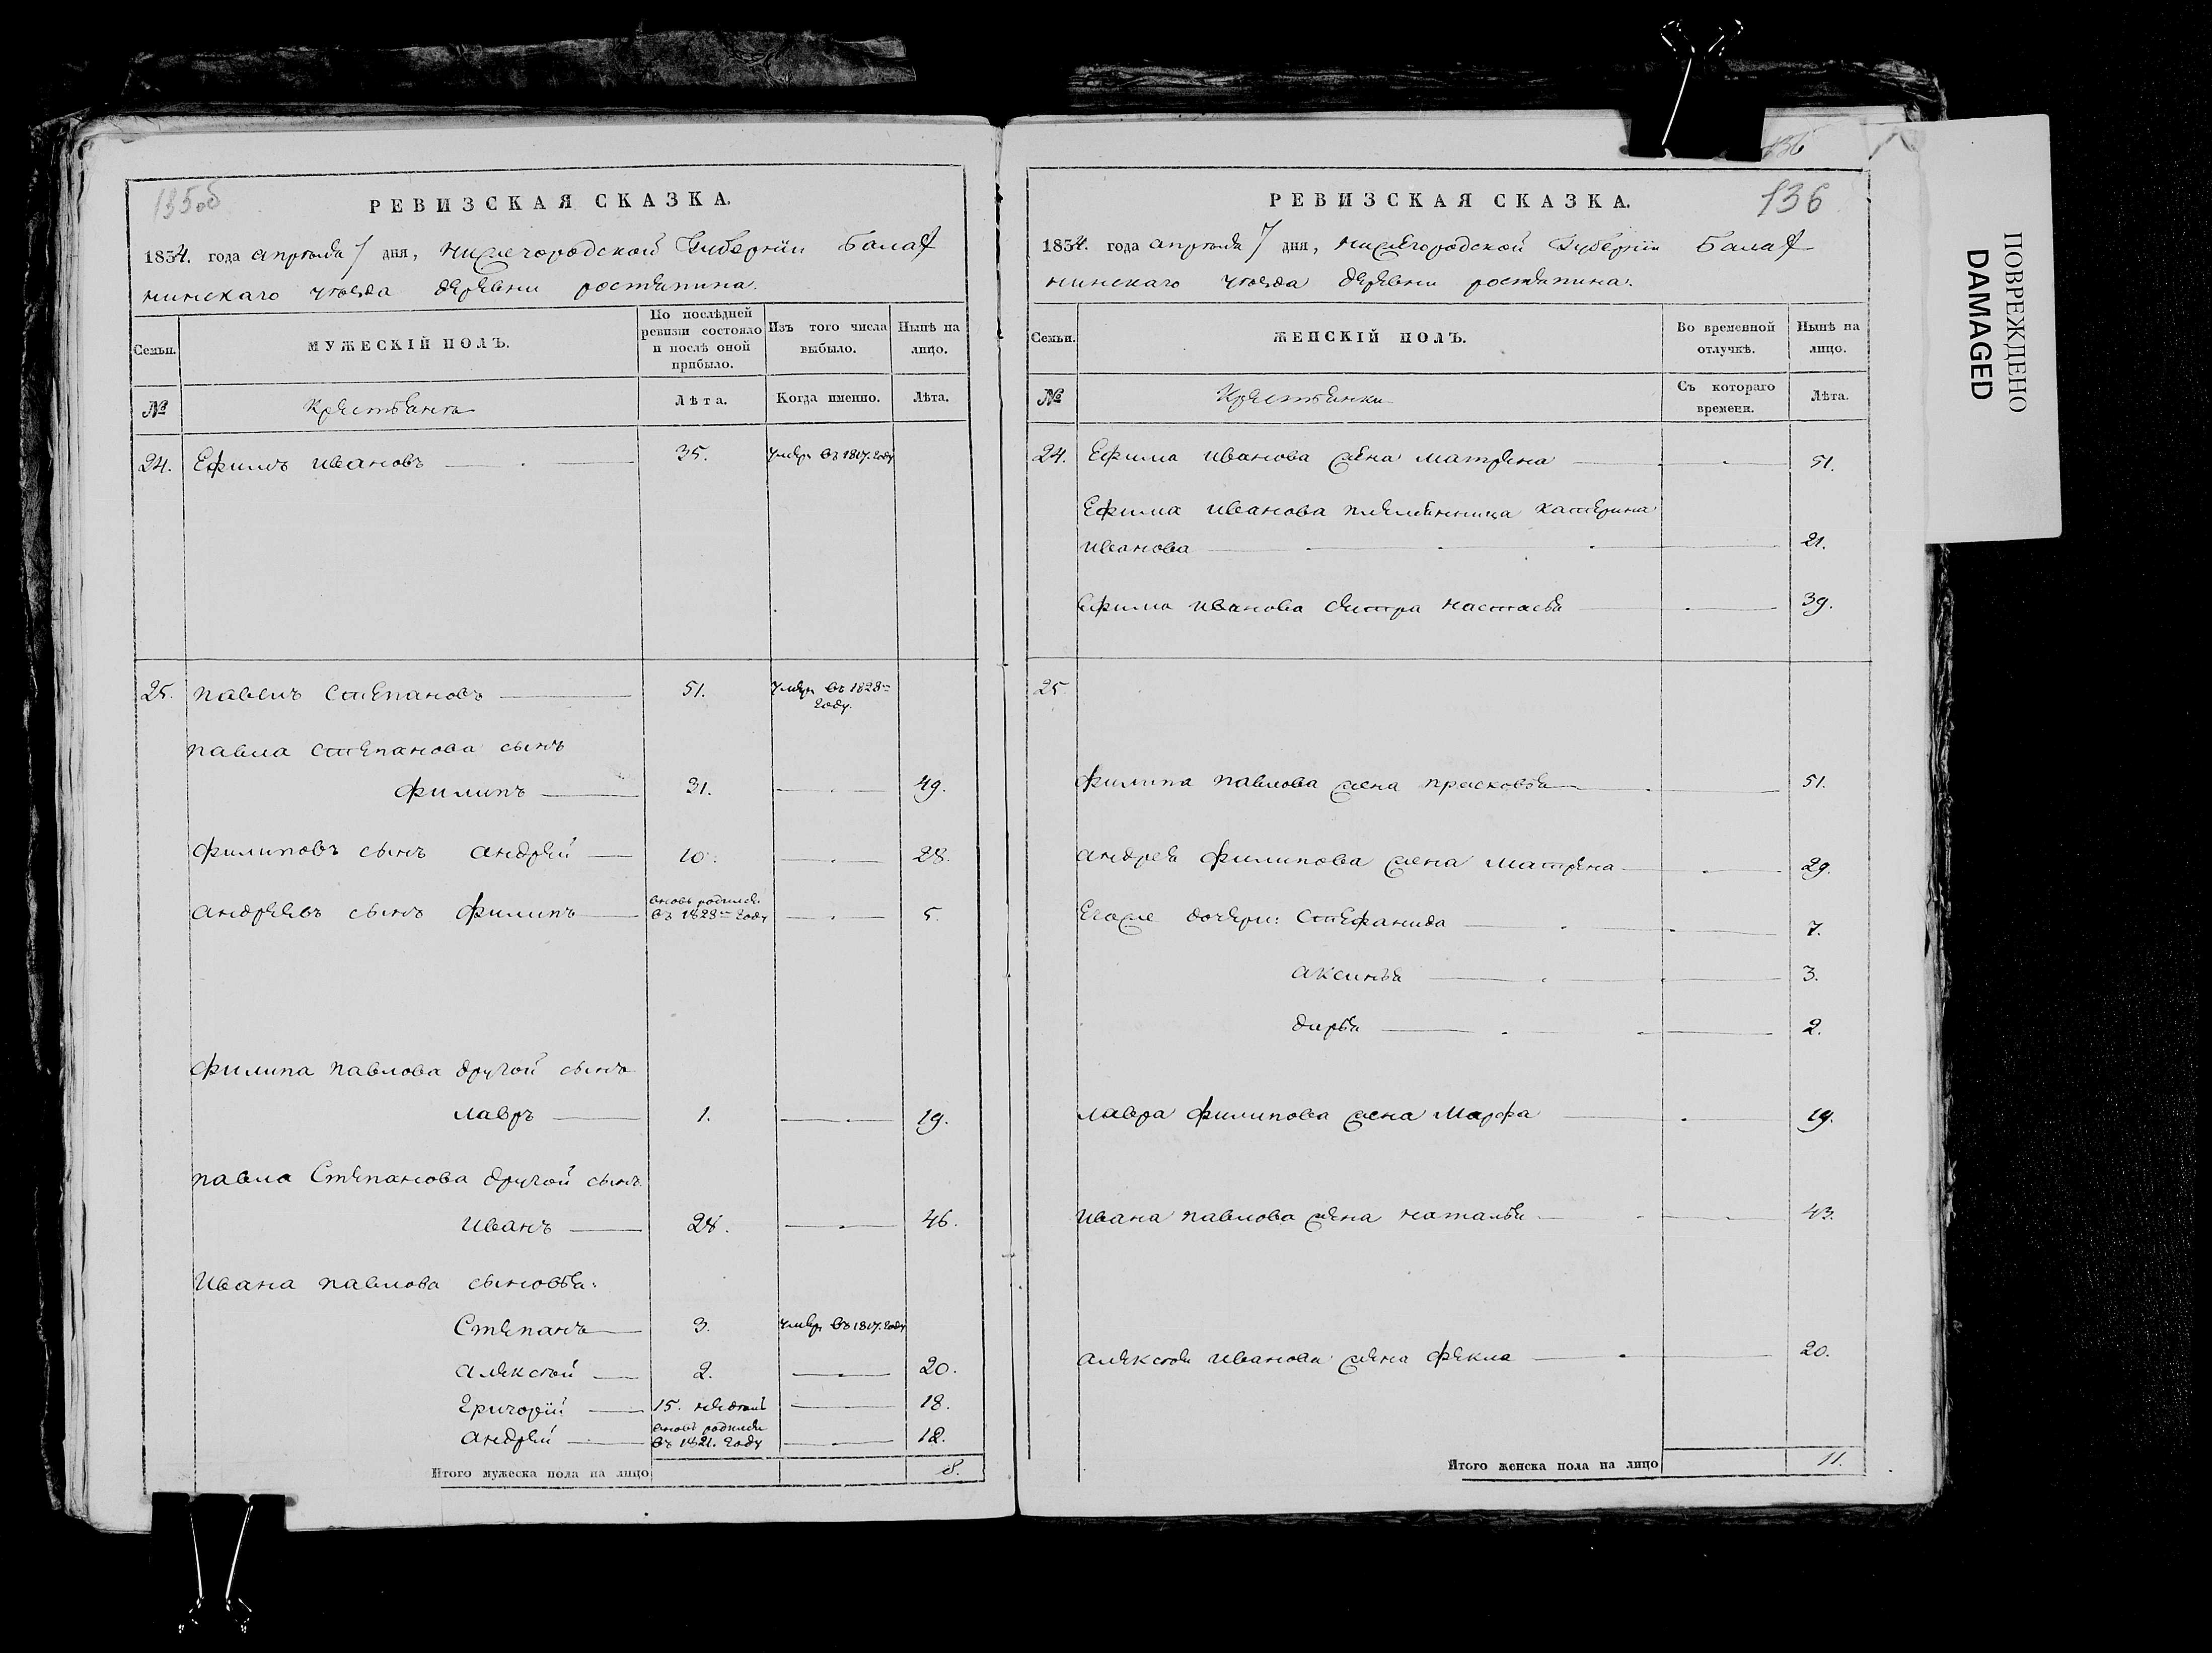 135об
РЕВИЗСКАЯ СКАЗКА.
1834. года апреля 7 дня, нижегородской Губернии Балах
нинскаго уезда деревни ростяпина.
Семьи.
МУЖЕСКІЙ ПОЛЪ.
По послѣдней ревизіи состояло и послѣ оной прибыло.
Изъ того числа выбыло.
Нынѣ на лицо.
№
Крестьяне
Лѣта.
Когда именно.
Лѣта.
24. Ефимъ ивановъ 35. умеръ въ 1817. году
25. павелъ степановъ 51. умеръ въ 1828м
году.
павла степанова сынъ
филипъ 31. 49.
филиповъ сынъ андрей 10. 28.
вновь родился
андреевъ сынъ филипъ въ 1828м году 5.
филипа павлова другой сынъ
лавръ 1. 19.
павла Степанова другой сынъ
иванъ 28. 46.
ивана павлова сыновья:
Степанъ 3. умеръ въ 1817. году
алексѣй 2. 20.
Григорій 15. недель 18.
вновь родился
андрей въ 1821. году 12.
Итого мужеска пола на лицо 8.
136
136
РЕВИЗСКАЯ СКАЗКА.
1834. года апреля 7 дня, нижегородской Губерніи Балах
нинскаго уезда деревни ростяпина.
Семьи.
ЖЕНСКІЙ ПОЛЪ.
Во временной отлучкѣ.
Нынѣ на лицо.
№
Крестьянки
Съ котораго времени.
Лѣта.
24. Ефима иванова жена матрена 51.
Ефима иванова племянница катерина
иванова 21.
ефима иванова сестра настасья 39.
25.
филипа павлова жена прасковья 51.
андрея филипова жена матрена 29.
Егоже дочери: стефанида 7.
аксинья 3.
дарья 2.
лавра филипова жена марфа 19.
ивана павлова жена наталья 43.
алексѣя иванова жена фекла 20.
Итого женска пола на лицо 11.
ПОВРЕЖДЕНО
DAMAGED